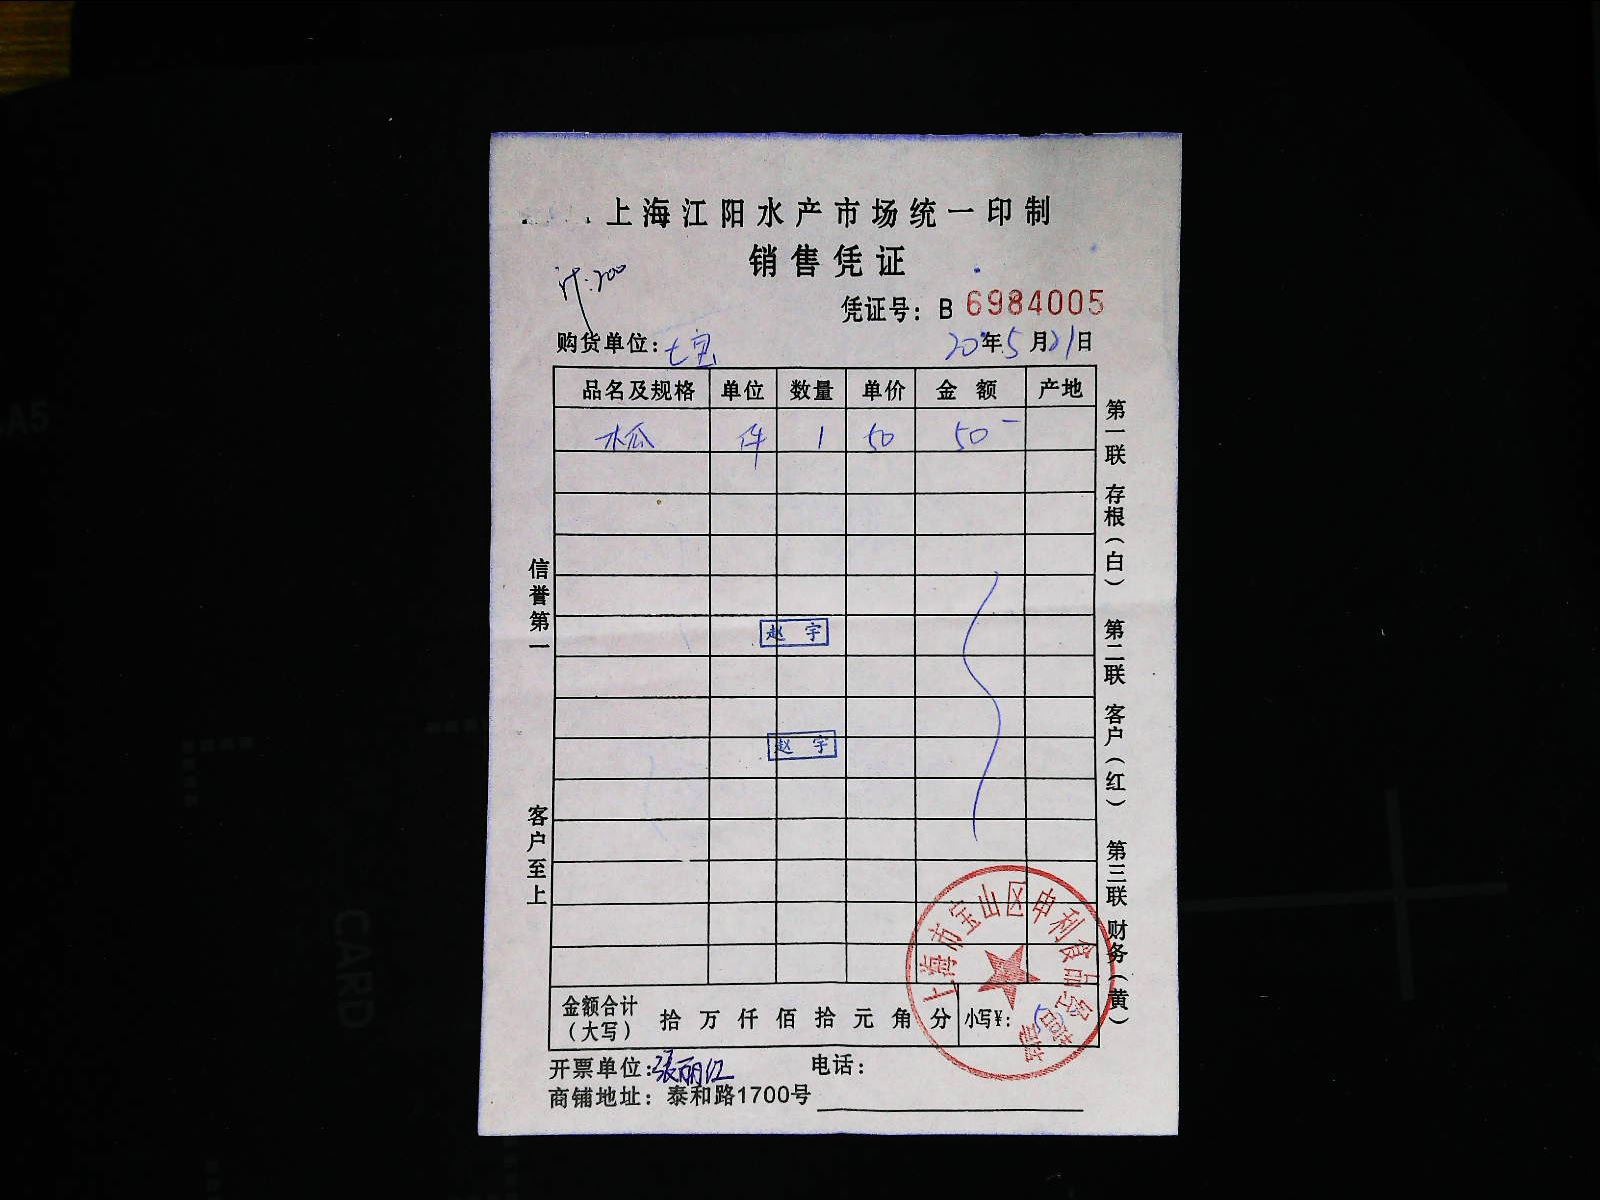 上海江阳水产市场统一印制
销售凭证
计:200
凭证号：B 6984005
购货单位：七宝 20年5月21日
品名及规格 单位 数量 单价 金额 产地
木瓜 件 1 50 50-
第一联 存根（白） 第二联 客户（红） 第三联 财务（黄）
信誉第一
客户至上
赵宇
赵宇
上海市宝山区申利食品经营部
金额合计（大写） 拾 万 仟 佰 拾 元 角 分 小写¥：
开票单位：张丽红 电话：
商铺地址：泰和路1700号